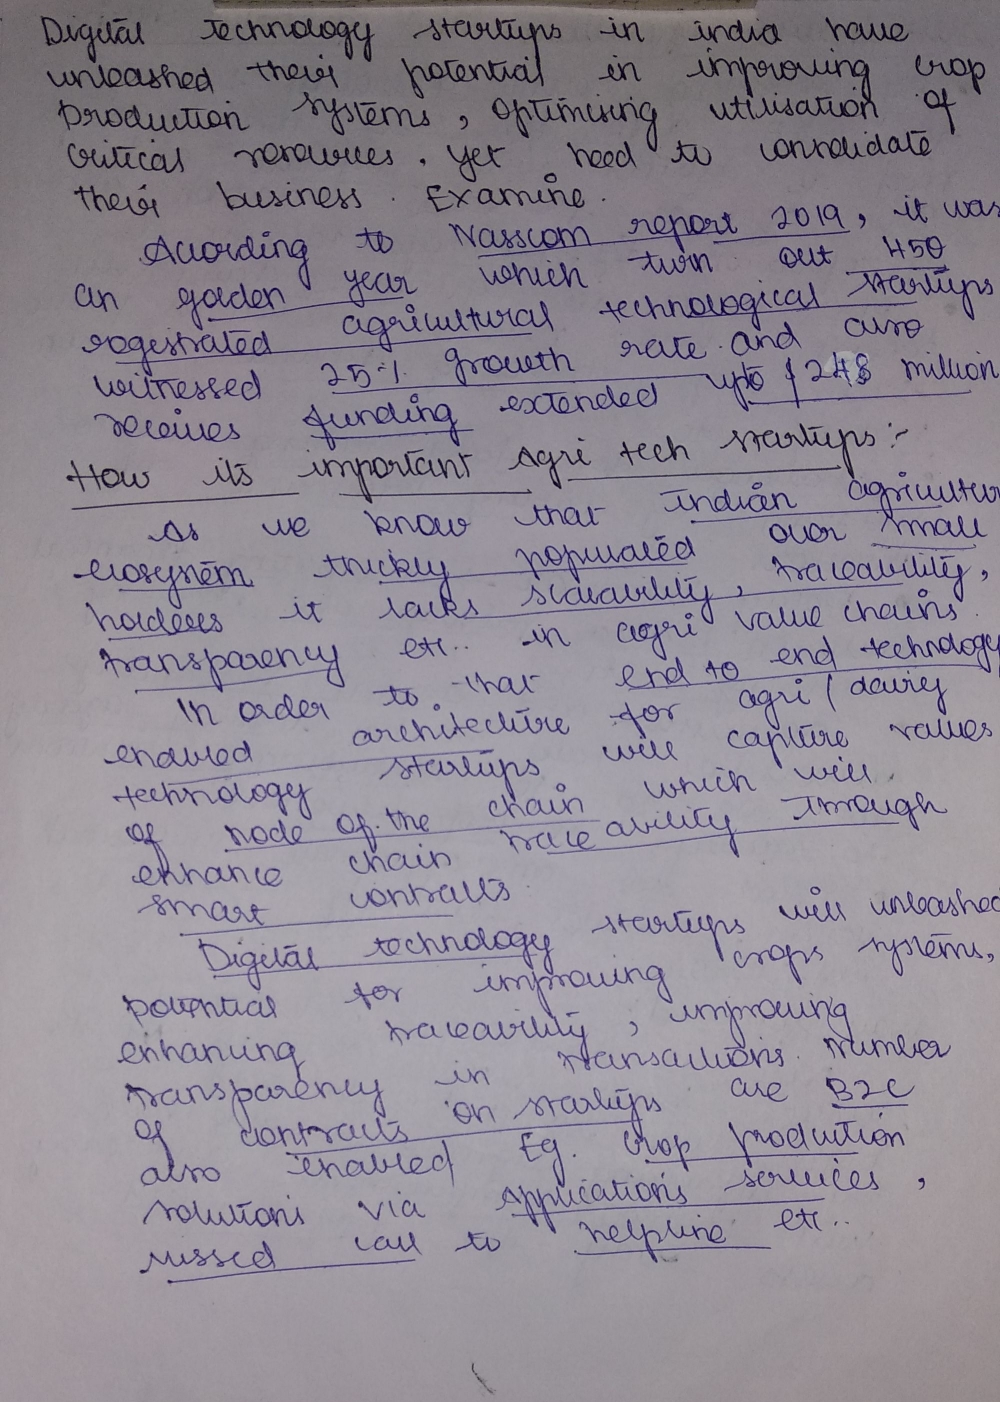 Digital technology startups in india have
unleashed their potential in improving crop
production systems, optimising utilisation of
critical resources. yet need to consolidate
their business. Examine.
According to Nasscom report 2019, it was
an golden year which turn out 450
rogestrated agricultural technological startups
witnessed 25% growth rate and also
receives funding extended upto $248 million
How its important Agri tech startups:-
As we know that Indian agricultur
ecosystem thickly populated over small
holders it lacks scalability, traceability,
transparency etc.. in agri value chains.
In order to that end to end technology
enabled architecture for agri/dairy
technology startups will capture values
of node of the chain which will
enhance chain traceability through
smart contracts.
Digital technology startups will unleashed
potential for improving crops systems,
enhancing traceability, improving
transparency in transactions. Number
of contracts on startups are B2C
also enabled Eg. Crop production
solutions via Applications services,
missed call to helpline etc..